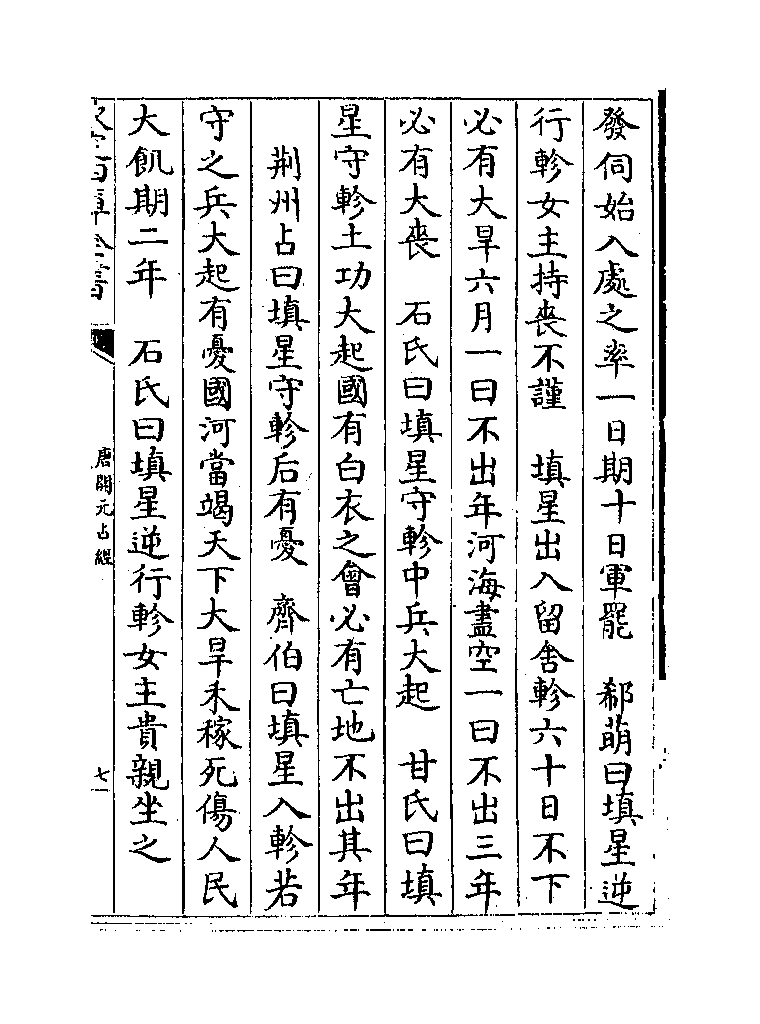 發伺始入處之率一日期十日軍罷　郗萌曰填星逆
行軫女主持喪不謹　填星出入留舍軫六十日不下
必有大旱六月一曰不出年河海盡空一曰不出三年
必有大喪　石氏曰填星守軫中兵大起　甘氏曰填
星守軫土功大起國有白衣之會必有亡地不出其年
荆州占曰填星守軫后有憂　齊伯曰填星入軫若
守之兵大起有憂國河當竭天下大旱禾稼死傷人民
大飢期二年　石氏曰填星逆行軫女主貴親坐之
唐開元占經
七一